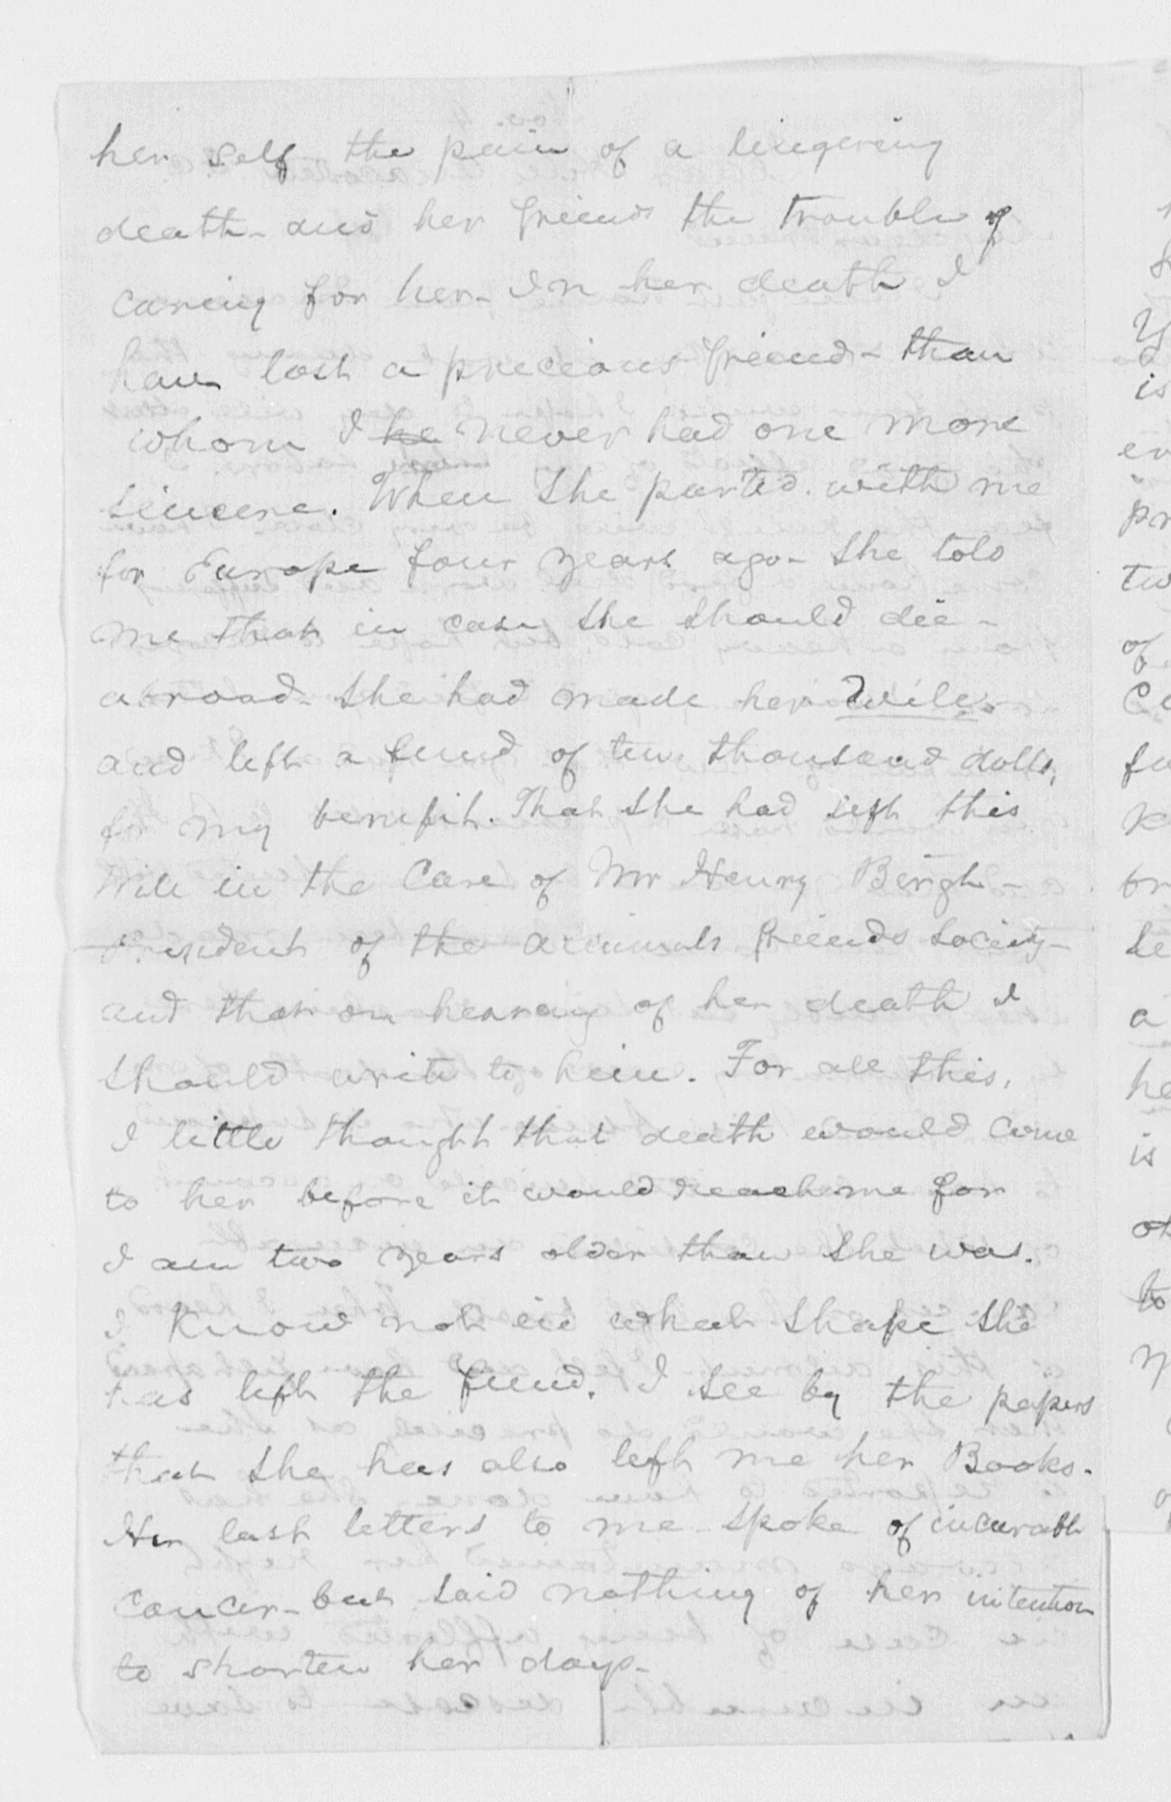 her self the pain of a lingering
death - and her friends the trouble of
caring for her - In her death I
have lost a precious friend - than
whom I he never had one more
sincere. When she parted with me
for Europe four years ago - she told
me that in case she should die -
abroad - she had made her will -
and left a fund of ten thousand dolls,
for my benefit. That she had left this
Will in the care of Mr Henry Bergh -
President of the animals friends society -
and that on hearing of her death I
should write to him. For all this,
I little thought that death would come
to her before it would reach me for
I am two years older than she was.
I Know not in what shape she
has left the fund. I see by the papers
that she has also left me her Books.
Her last letters to me spoke of incurable
cancer - but said nothing of her intention
to shorten her days -
is
pr
two
of
a
he
is
to